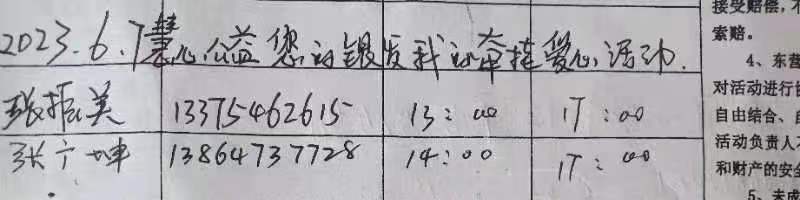 2023.6.7慧心公益 您的银发我的牵挂爱心活动.
张振美 13375462615 13:00 17:00
张广坤 13864737728 14:00 17:00
接受赔偿,不
索赔。
4、东营
对活动进行
自由结合、自
活动负责人
和财产的安全
5、未成